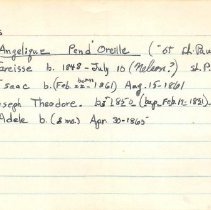 Angelique Pend' Oreille ("of St. Pau
arcisse b. 1848 - July 10 (Nelson?) S
saac b. (Feb. 22 - 1861) Aug. 15 - 1861
seph Theodore. b. 1850 (bap. Feb. 12 - 1851)
Adele b. (2 mo.) Apr. 30 - 1865